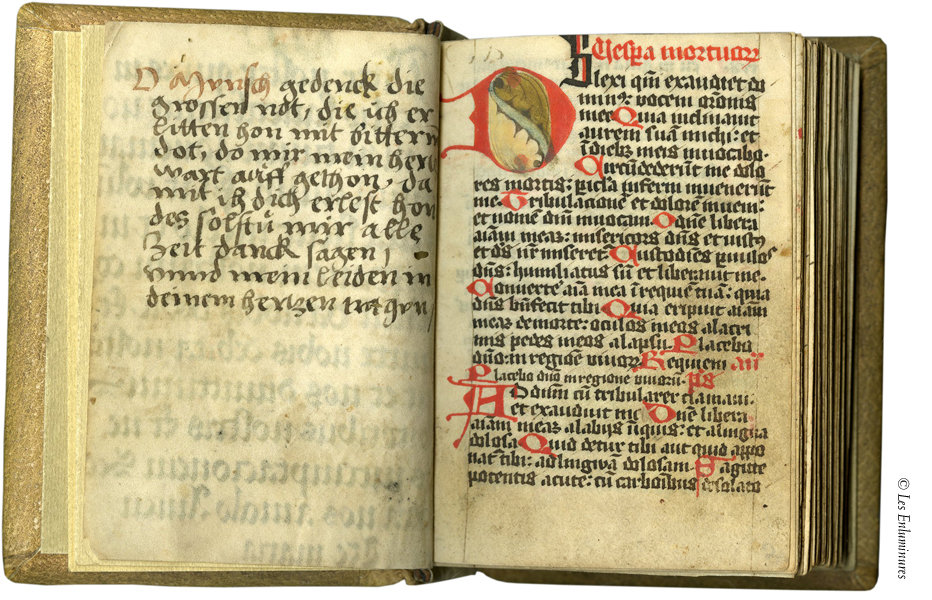 O Mensch gedenck die
grossen not, die ich er
litten hon mit bitterm
dot, do mir mein hertz
wart auff gethon, da
mit ich dich erlest hon
des solstu mir alle
Zeit danck sagen,
vnnd mein leiden in
deinem hertzen
Vespa mortuorum
Dilexi qm exaudiet do
minus vocem oronis
mee Quia inclinavit
aurem suā michi: et
ī diebus meis invocabo.
Circūdederūt me dolo
res mortis: picla inferni invenerūt
me. Tribulacionē et dolorē inveni:
et nomē dni invocavi O dne libera
aiam meā: misericors dns et iustus
et ds nr miseretur Custodiēs pvulos
dns: humiliatus sū et liberavit me.
Convertē aīa mea ī requiē tuā: quia
dns bnfecit tibi Quia eripuit aiam
meā de morte: oculos meos a lacri
mis pedes meos a lapsu. Placebo
dno: in regione vivorū Requiem
Placebo dno in regione vivorū. ps
Ad dom cū tribularer clamavi:
et exaudivit me Dne libera
aiam meā a labijs iniquis: et a lingua
dolosa Quid detur tibi aut quid appo
nat tibi: ad linguā dolosam Sagitte
potentis acute: cū carbonibus desolato
© Les Enluminures